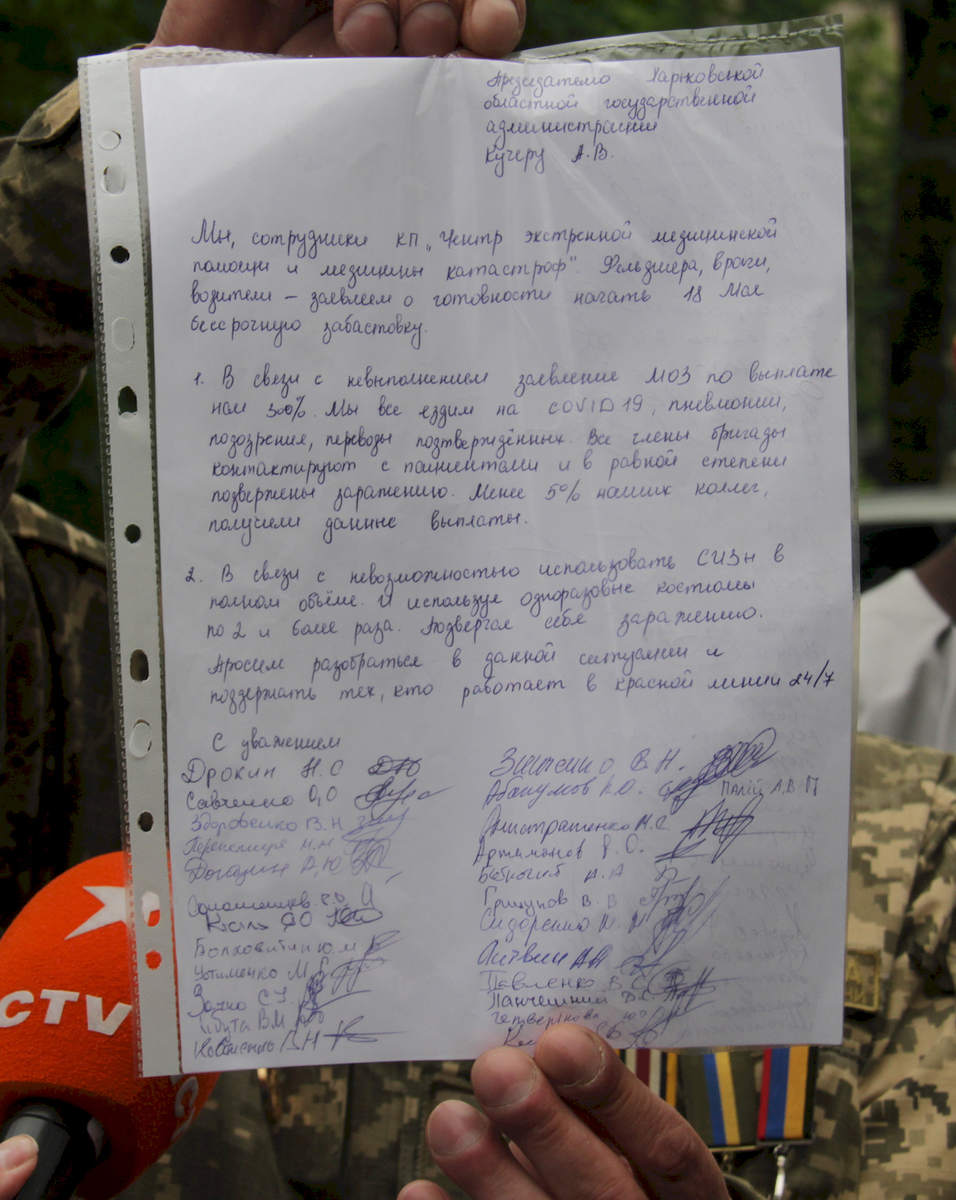 Председателю Харьковськой
областной государственной
администрации
Кучеру А.В.
Мы, сотрудники КП „Центр экстренной медицинской
помощи и медицины катастроф". Фельдшера, врачи,
водители – заявляем о готовности начать 18 Мая
бессрочную забастовку.
1. В связи с невыполнением заявление МОЗ по выплате
нам 300%. Мы все ездим на COVID19, пневмонии,
подозрения, переводы подтверждённых. Все члены бригады
контактируют с пациентами и в равной степени
подвержены заражению. Менее 5% наших коллег,
получили данные выплаты.
2. В связи с невозможностью использовать СИЗы в
полном объёме. И используя одноразовые костюмы
по 2 и более раза. Подвергая себя заражению.
Просим разобраться в данной ситуации и
поддержать тех, кто работает в красной линии 24/7
С уважением
Дрокин Н.О
Савченко О,О
Здоровенко В.Н
В.Н.
Абакумов Ю.
Палій А.В.
Артимонов
Грицунов В. В
Сидоренко
Кисль
Болховитин Ю.М
Литвин АН
Устименко М
Павленко В.С
Панчешний
Цибута В.М
Коваленко В Н
CTV